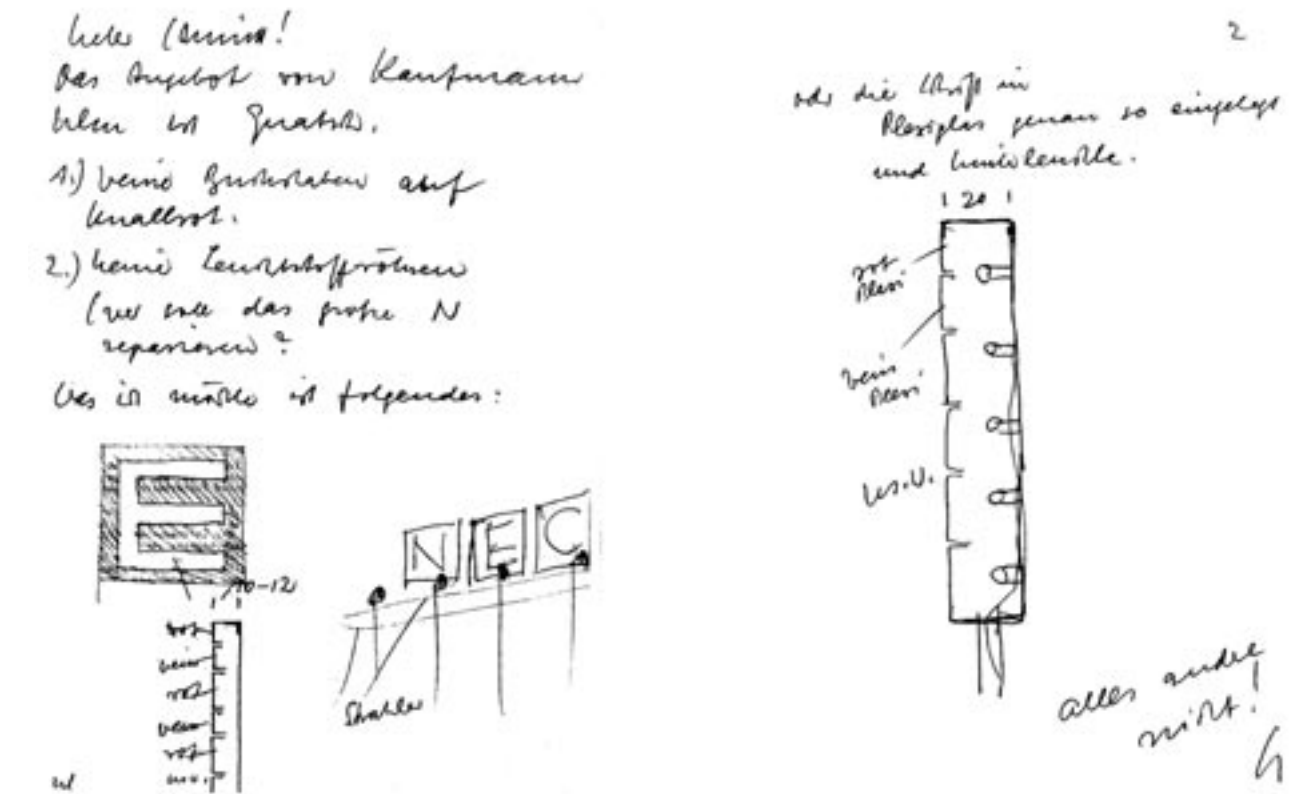 Das Angebot von Kaufmann
ist Quatsch.
1.) keine Buchstaben auf
knallrot.
2.) keine Leuchtstoffröhren
(wer soll das große N
reparieren?
Was ich möchte ist folgendes:
10-12
rot
weiss
rot
weiss
rot
u.s.w.
N E C
Strahler
2
oder die Schrift in
Plexiglas genau so eingelegt
und hinterleuchtet.
20
rot
Plexi.
weiss
Plexi.
u.s.w.
alles andere
nicht!